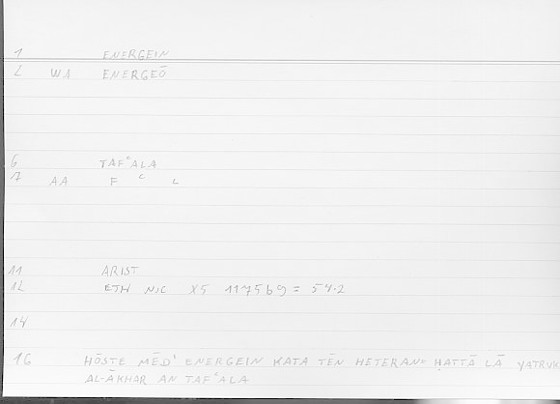 1 ENERGEIN
2 WA ENERGEŌ
6 TAFᶜALA
7 AA F ᶜ L
11 ARIST
12 ETH NIC X5 1175b9 = 54.2
14
16 HŌSTE MĒD' ENERGEIN KATA TĒN HETERAN = ḤATTĀ LĀ YATRUK
AL-ĀKHAR AN TAFᶜALA